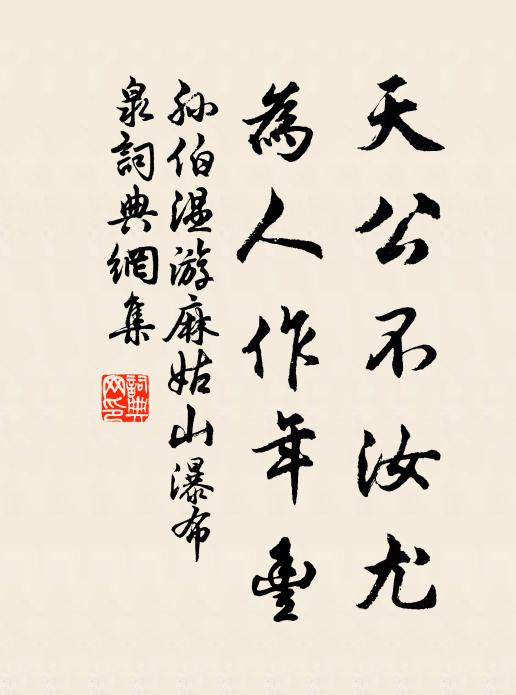 天公不汝尤
為人作年豐
孫伯溫游麻姑山瀑布
泉詞典網集
詞典
网印